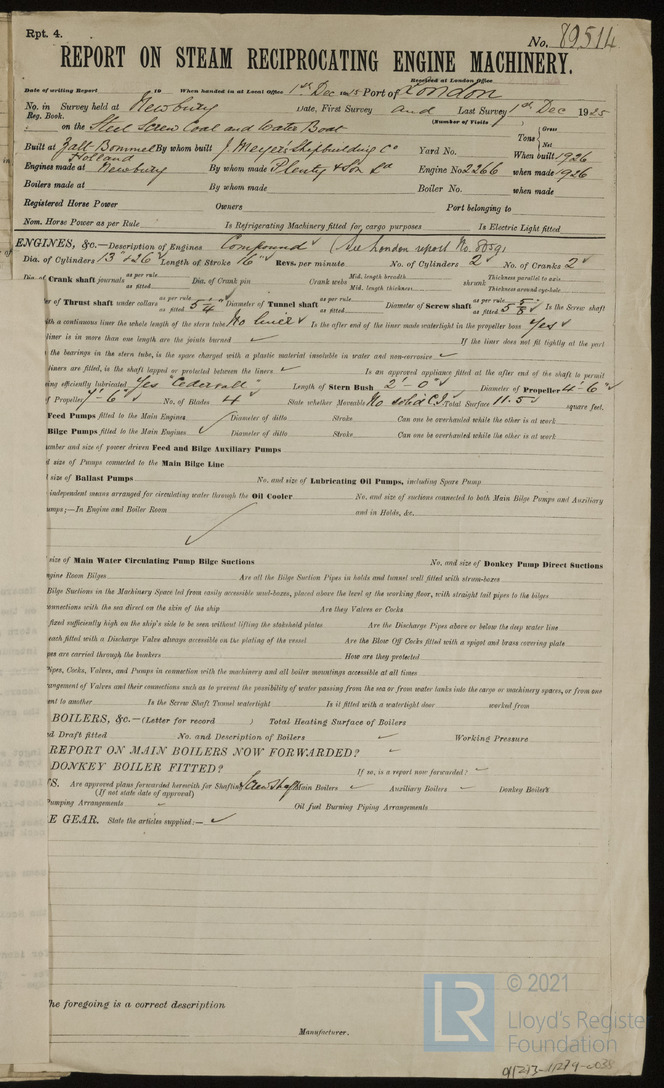 Rpt. 4.
No. 89514
REPORT ON STEAM RECIPROCATING ENGINE MACHINERY.
Received at London Office
Date of writing Report 19 When handed in at Local Office 1st Dec 1925 Port of London
No. in Survey held at Newbury Date, First Survey and Last Survey 1st Dec 1925
Reg. Book. (Number of Visits )
on the Steel Screw Coal and Water Boat Tons Gross Net
Built at Zalt Bommel Holland By whom built J. Meyer's Shipbuilding Co Yard No. When built 1926
Engines made at Newbury By whom made Plenty & Son Ld Engine No. 2266 when made 1926
Boilers made at By whom made Boiler No. when made
Registered Horse Power Owners Port belonging to
Nom. Horse Power as per Rule Is Refrigerating Machinery fitted for cargo purposes Is Electric Light fitted
ENGINES, &c.—Description of Engines Compound (See London report No.
Dia. of Cylinders 13" & 26" Length of Stroke 16" Revs. per minute No. of Cylinders 2 No. of Cranks 2
Dia. of Crank shaft journals as per rule as fitted Dia. of Crank pin Crank webs Mid. length breadth Mid. length thickness shrunk Thickness parallel to axis Thickness around eye-hole
er of Thrust shaft under collars as per rule as fitted 5 1/4" Diameter of Tunnel shaft as per rule as fitted Diameter of Screw shaft as per rule as fitted 5 5/8 Is the Screw shaft
th a continuous liner the whole length of the stern tube No liner Is the after end of the liner made watertight in the propeller boss Yes
liner is in more than one length are the joints burned If the liner does not fit tightly at the part
the bearings in the stern tube, is the space charged with a plastic material insoluble in water and non-corrosive
liners are fitted, is the shaft lapped or protected between the liners Is an approved appliance fitted at the after end of the shaft to permit
ing efficiently lubricated Yes "Cedervall" Length of Stern Bush 2'-0" Diameter of Propeller 4'-6"
of Propeller 7'-6" No. of Blades 4 State whether Moveable No solid C.I. Total Surface 11.5 square feet.
Feed Pumps fitted to the Main Engines Diameter of ditto Stroke Can one be overhauled while the other is at work
Bilge Pumps fitted to the Main Engines Diameter of ditto Stroke Can one be overhauled while the other is at work
umber and size of power driven Feed and Bilge Auxiliary Pumps
d size of Pumps connected to the Main Bilge Line
size of Ballast Pumps No. and size of Lubricating Oil Pumps, including Spare Pump
independent means arranged for circulating water through the Oil Cooler No. and size of suctions connected to both Main Bilge Pumps and Auxiliary
umps;—In Engine and Boiler Room and in Holds, &c.
size of Main Water Circulating Pump Bilge Suctions No. and size of Donkey Pump Direct Suctions
ngine Room Bilges Are all the Bilge Suction Pipes in holds and tunnel well fitted with strum-boxes
Bilge Suctions in the Machinery Space led from easily accessible mud-boxes, placed above the level of the working floor, with straight tail pipes to the bilges
onnections with the sea direct on the skin of the ship Are they Valves or Cocks
fixed sufficiently high on the ship's side to be seen without lifting the stokehold plates Are the Discharge Pipes above or below the deep water line
each fitted with a Discharge Valve always accessible on the plating of the vessel Are the Blow Off Cocks fitted with a spigot and brass covering plate
pes are carried through the bunkers How are they protected
Pipes, Cocks, Valves, and Pumps in connection with the machinery and all boiler mountings accessible at all times
rangement of Valves and their connections such as to prevent the possibility of water passing from the sea or from water tanks into the cargo or machinery spaces, or from one
ent to another Is the Screw Shaft Tunnel watertight Is it fitted with a watertight door worked from
BOILERS, &c.—(Letter for record ) Total Heating Surface of Boilers
d Draft fitted No. and Description of Boilers Working Pressure
REPORT ON MAIN BOILERS NOW FORWARDED?
DONKEY BOILER FITTED? If so, is a report now forwarded?
S. Are approved plans forwarded herewith for Shafting Screw shaft Main Boilers Auxiliary Boilers Donkey Boilers
(If not state date of approval)
umping Arrangements Oil fuel Burning Piping Arrangements
E GEAR. State the articles supplied:—
he foregoing is a correct description
Manufacturer.
© 2021
LR
Lloyd's Register
Foundation